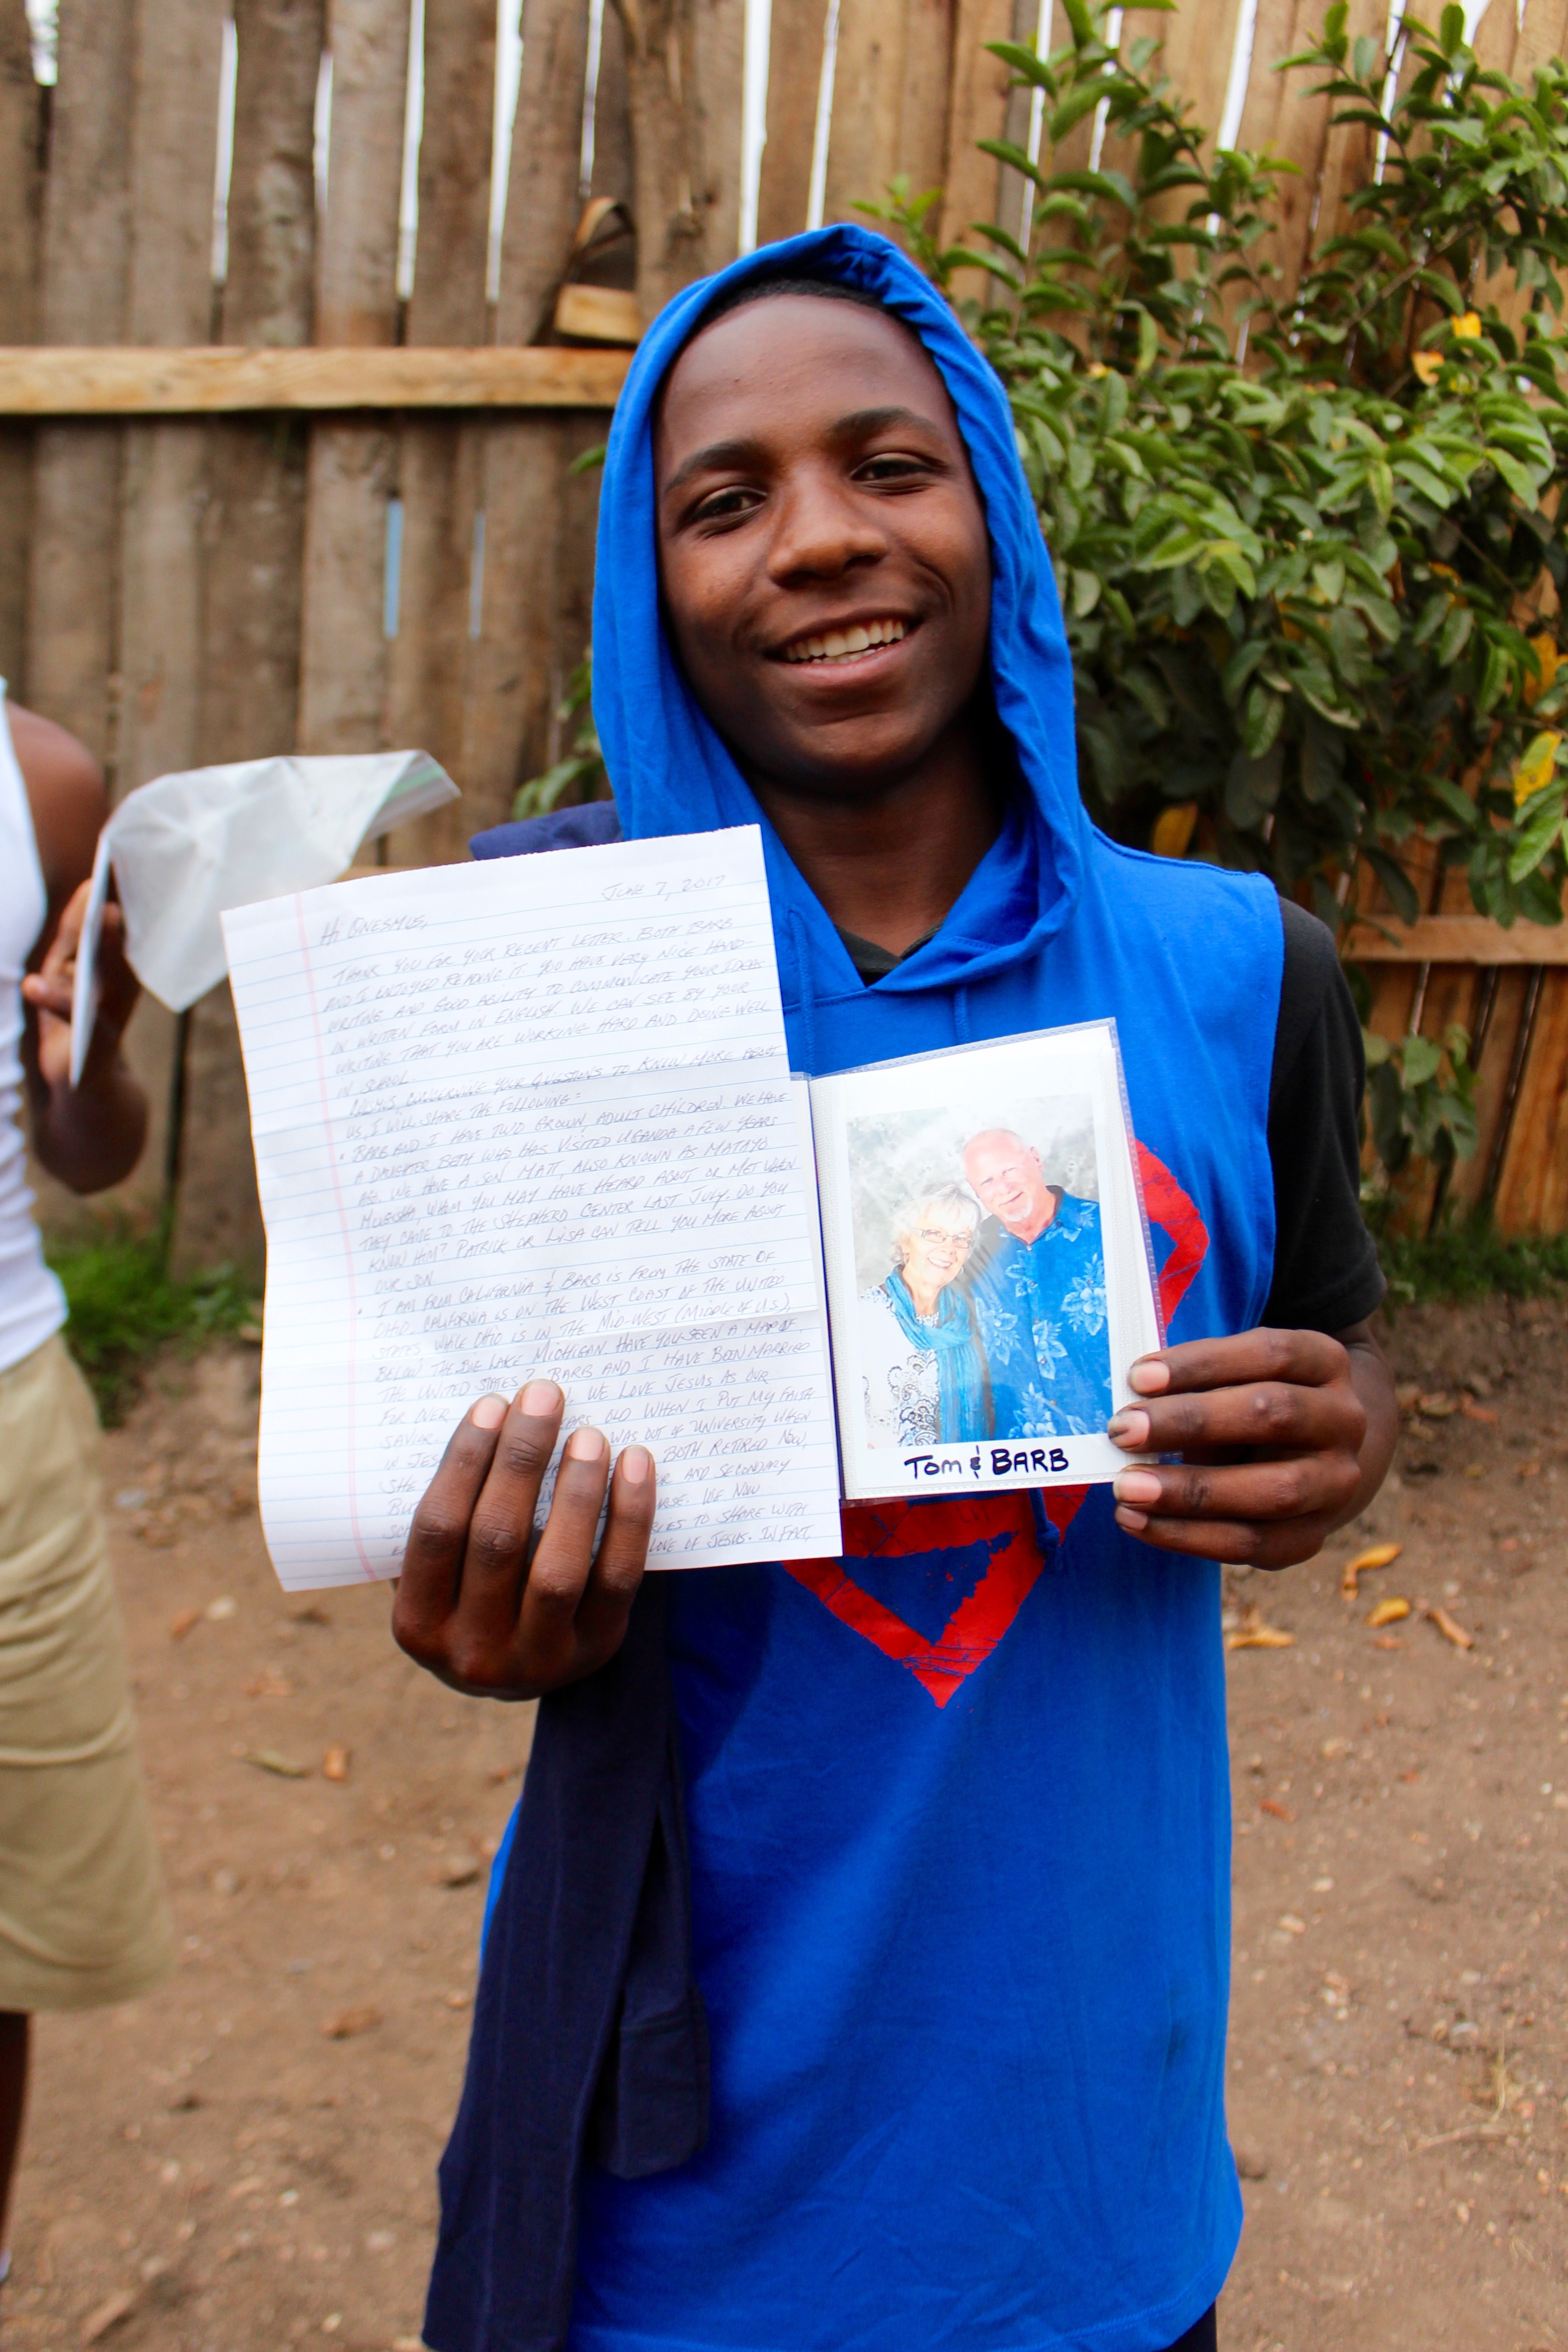 JUNE 7, 2017
HI ONESMUS,
THANK YOU FOR YOUR RECENT LETTER. BOTH BARB
AND I ENJOYED READING IT. YOU HAVE VERY NICE HAND-
WRITING AND GOOD ABILITY TO COMMUNICATE YOUR IDEAS
IN WRITTEN FORM IN ENGLISH. WE CAN SEE BY YOUR
WRITING THAT YOU ARE WORKING HARD AND DOING WELL
IN SCHOOL.
CONCERNING YOUR QUESTIONS TO KNOW MORE ABOUT
US, I WILL SHARE THE FOLLOWING:
• BARB AND I HAVE TWO GROWN, ADULT CHILDREN. WE HAVE
A DAUGHTER BETH WHO HAS VISITED UGANDA A FEW YEARS
AGO. WE HAVE A SON MATT, ALSO KNOWN AS MATAYO
MUGISHA, WHOM YOU MAY HAVE HEARD ABOUT OR MET WHEN
THEY CAME TO THE SHEPHERD CENTER LAST JULY. DO YOU
KNOW HIM? PATRICK OR LISA CAN TELL YOU MORE ABOUT
OUR SON.
• I AM FROM CALIFORNIA & BARB IS FROM THE STATE OF
OHIO. CALIFORNIA IS ON THE WEST COAST OF THE UNITED
STATES, WHILE OHIO IS IN THE MID-WEST (MIDDLE OF U.S.),
BELOW THE BIG LAKE MICHIGAN. HAVE YOU SEEN A MAP OF
THE UNITED STATES? BARB AND I HAVE BEEN MARRIED
FOR OVER WE LOVE JESUS AS OUR
SAVIOR. YEARS OLD WHEN I PUT MY FAITH
IN JES WAS OUT OF UNIVERSITY WHEN
SHE BOTH RETIRED NOW,
BU AND SECONDARY
SC WE NOW
TO SHARE WITH
LOVE OF JESUS. IN FACT,
TOM & BARB